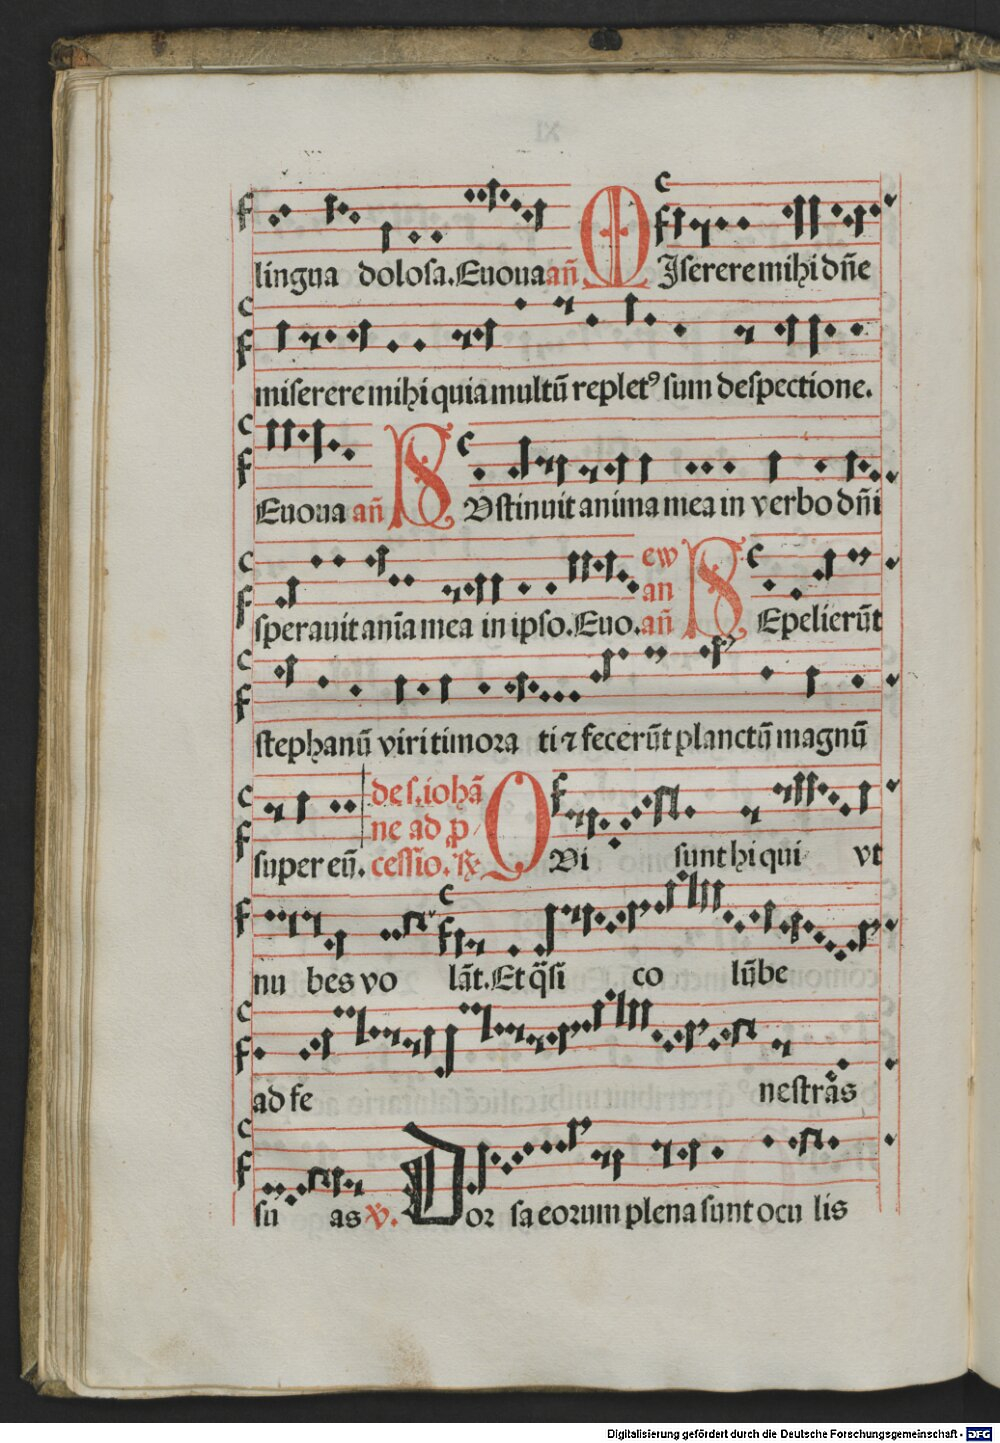 lingua dolosa. Euoua añ MIserere mihi dn̄e
miserere mihi quia multū replet⁹ sum despectione.
Euoua añ SVstinuit anima mea in verbo dn̄i
sperauit anīa mea in ipso. Euo. añ ew an SEpelierūt
stephanū viri timora ti ⁊ fecerūt planctū magnū
super eū. de s. iohā ne ad p cessio. ℟ QVi sunt hi qui vt
nu bes vo lāt. Et q̄si co lūbe
ad fe nestras
su as ℣. Dor sa eorum plena sunt ocu lis
Digitalisierung gefördert durch die Deutsche Forschungsgemeinschaft - DFG